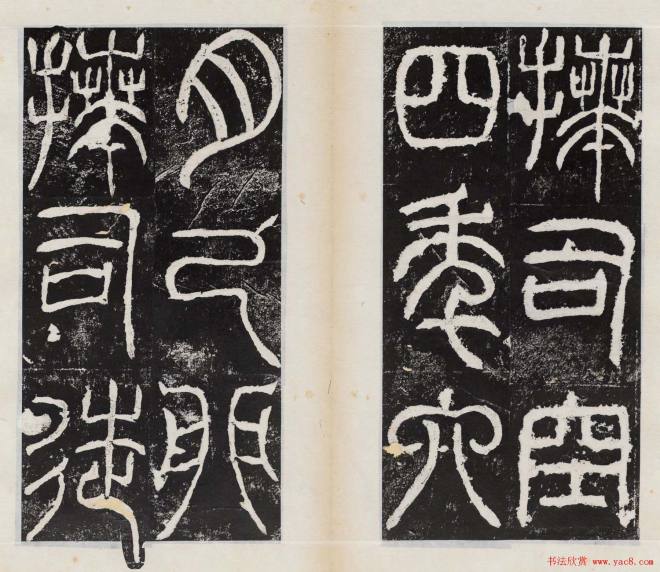 拜司空
四年六
月己卯
拜司徒
书法欣赏 www.yac8.com